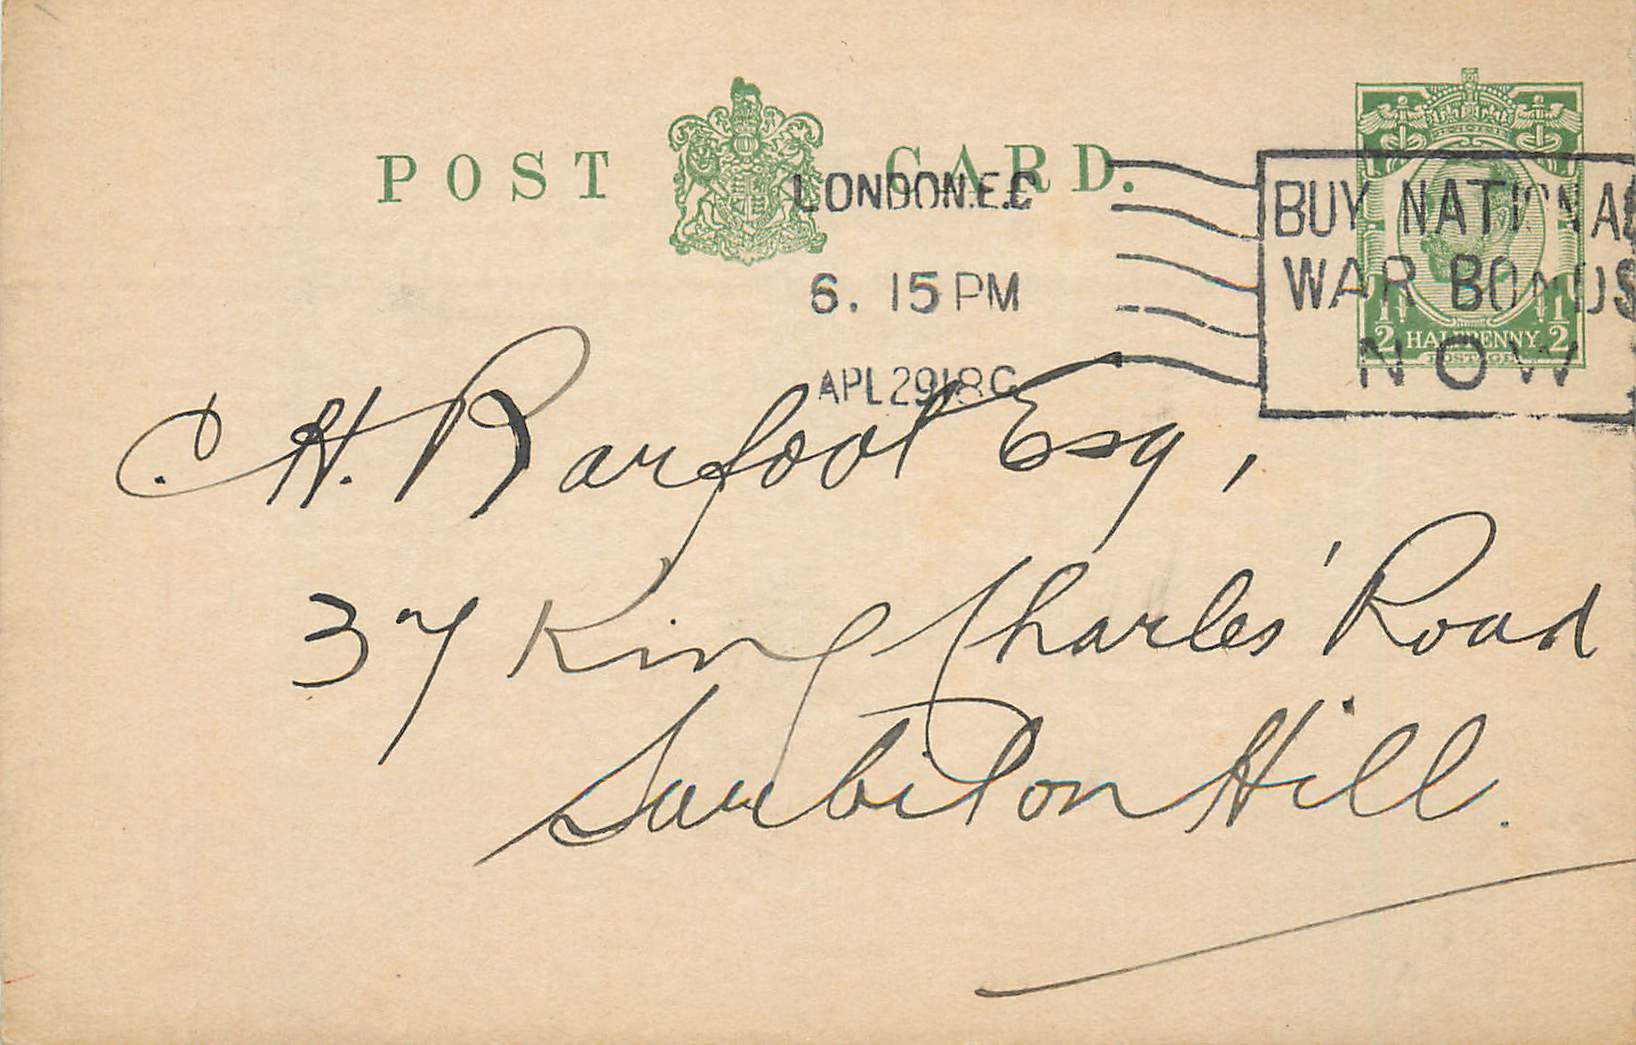 POST CARD.
LONDON.E.C
6. 15 PM
APL 29 18 C
BUY NATIONAL
WAR BONDS
NOW
1/2 HALFPENNY 1/2
POSTAGE
C. H. Barfoot Esq,
37 King Charles' Road
Surbiton Hill.